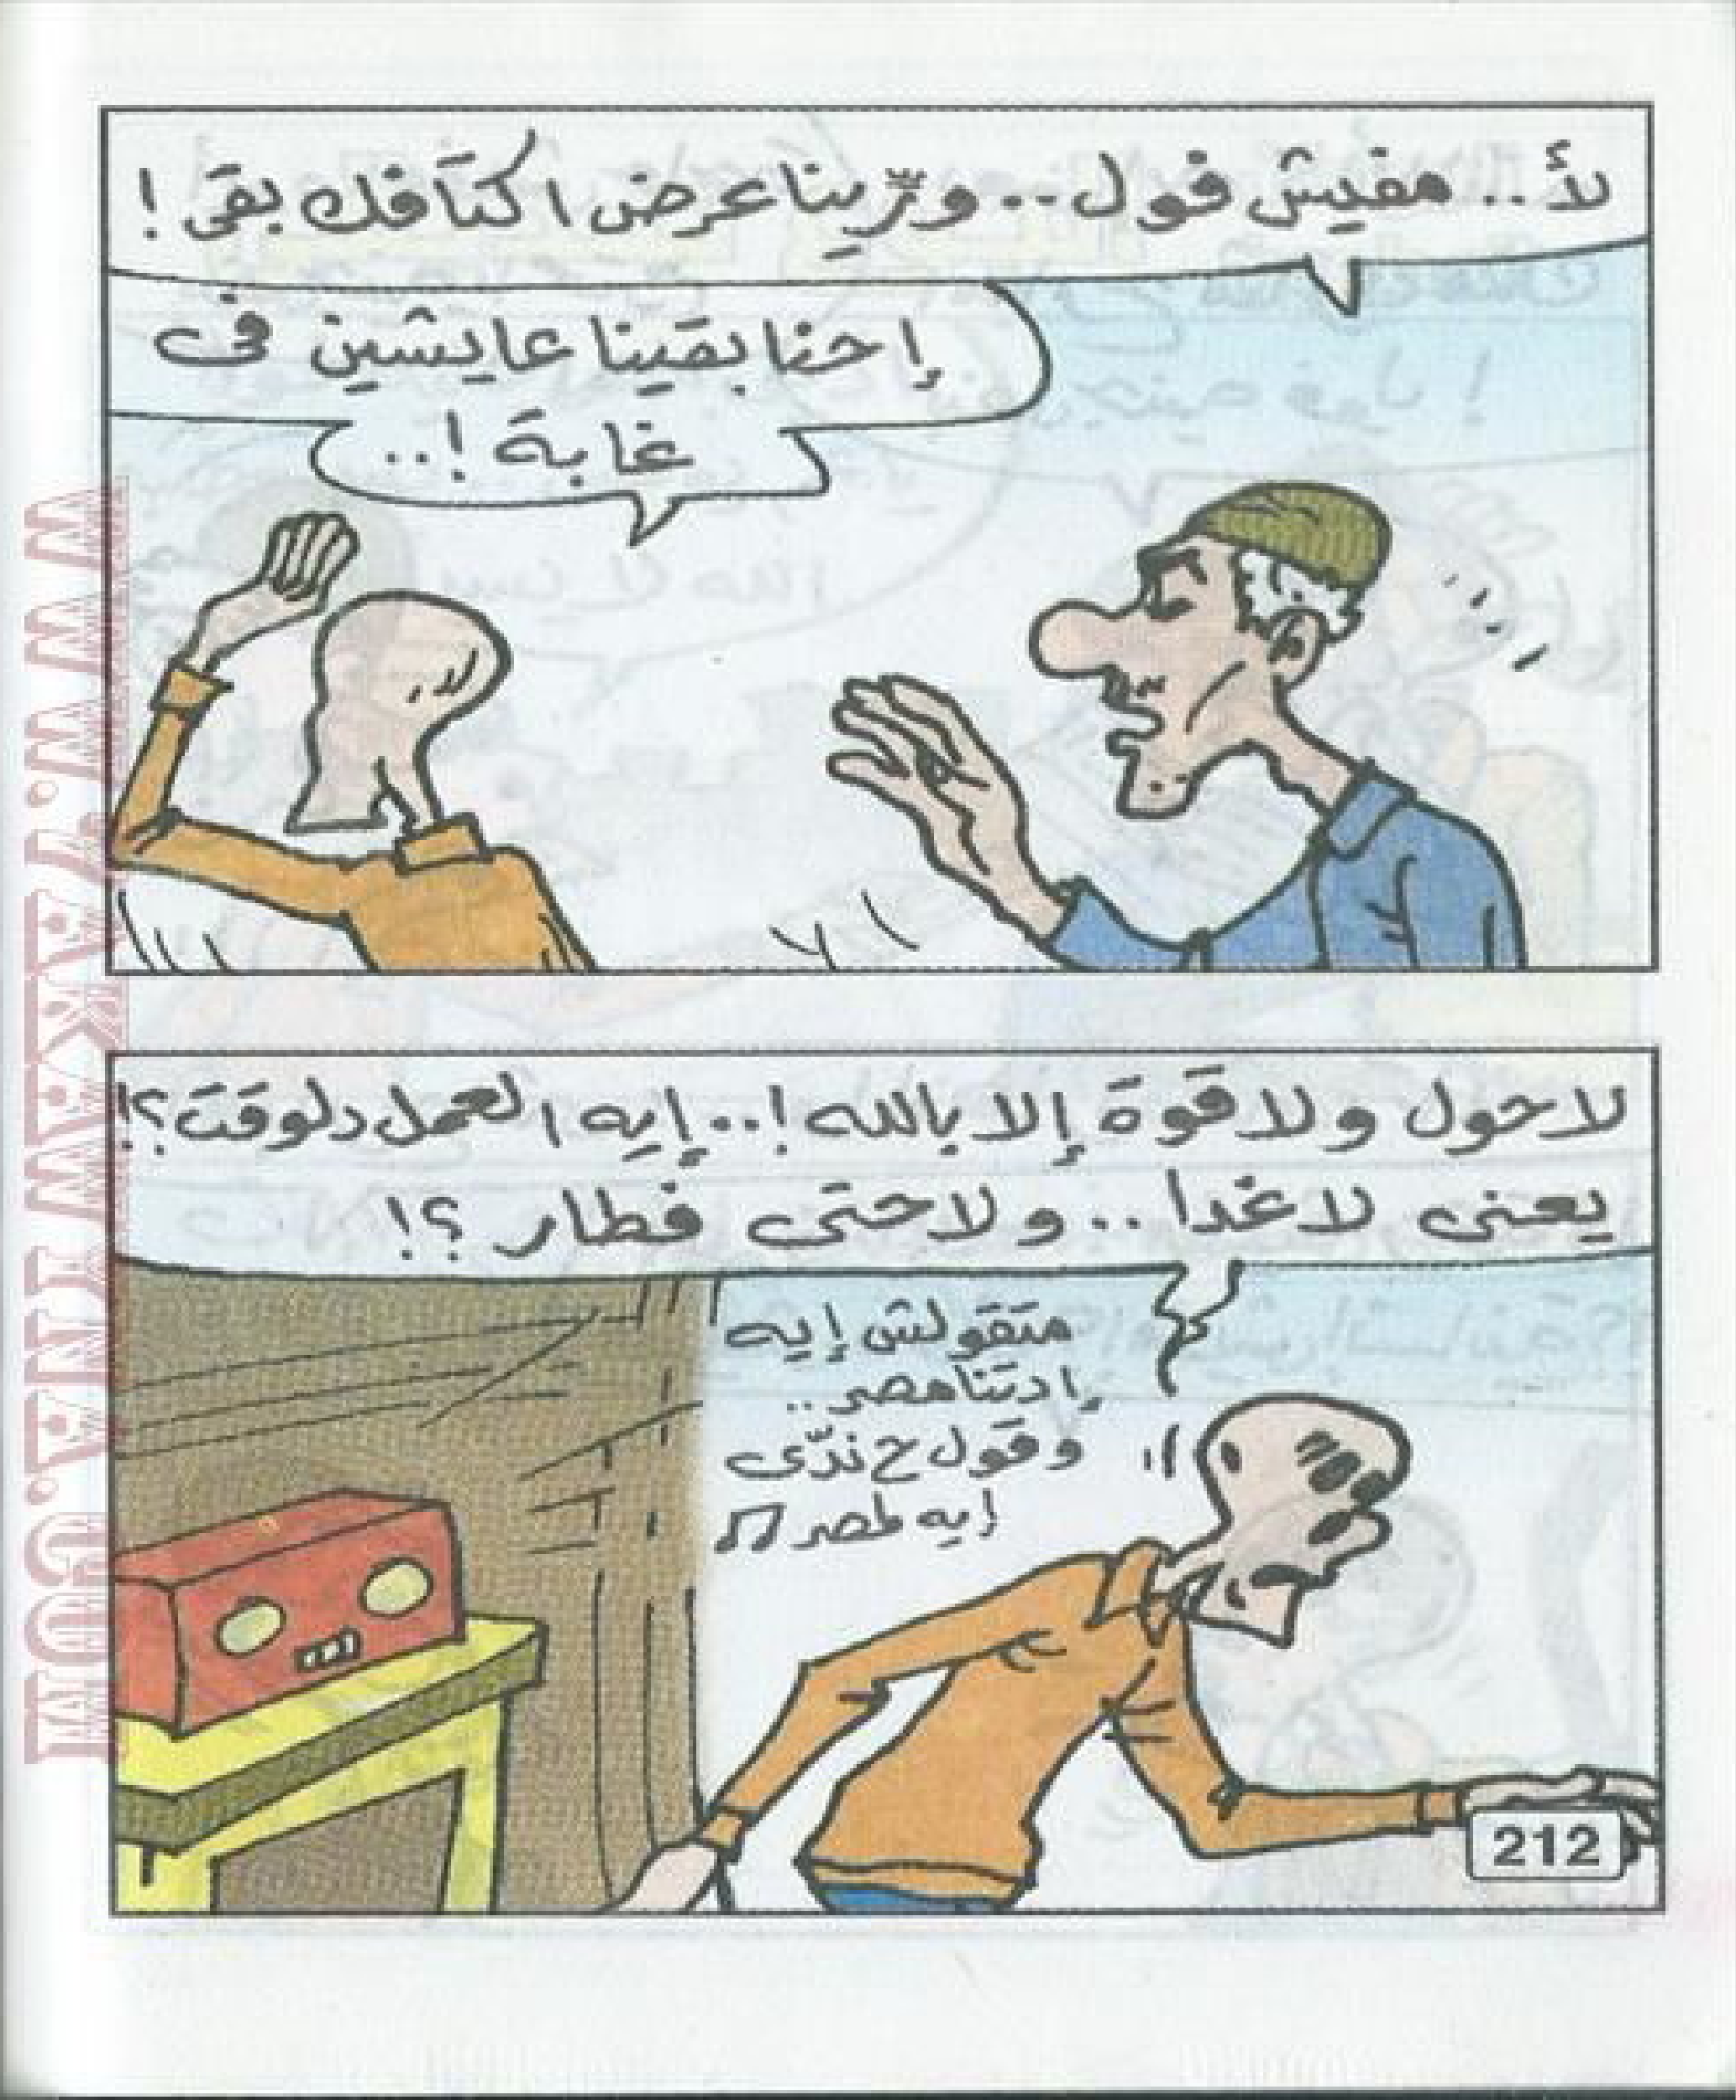 لأ.. مفيش فول.. ورّينا عرض اكتافك بقى!
إحنا بقينا عايشين فى
غابة!..
لا حول ولا قوة إلا بالله!.. إيه العمل دلوقت؟!
يعنى لا غدا.. ولا حتى فطار؟!
متقولش إيه
إدتنا مصر..
وقول ح ندّى
إيه لمصر
212
WWW.7AKAWINA.COM